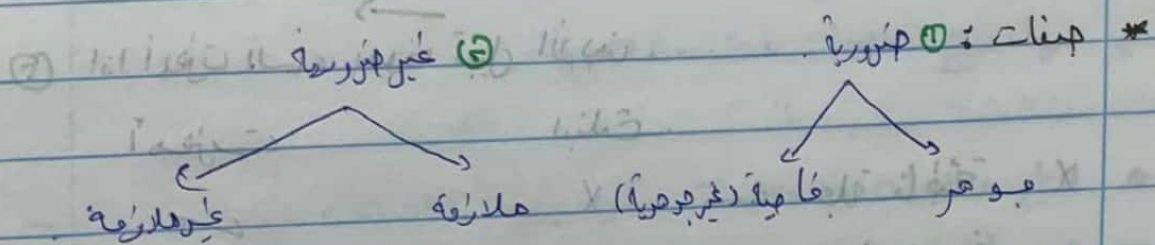 * صفات : ① ضرورية ② غير ضرورية
جوهر خاصية (غير جوهرية) ملازمة غير ملازمة